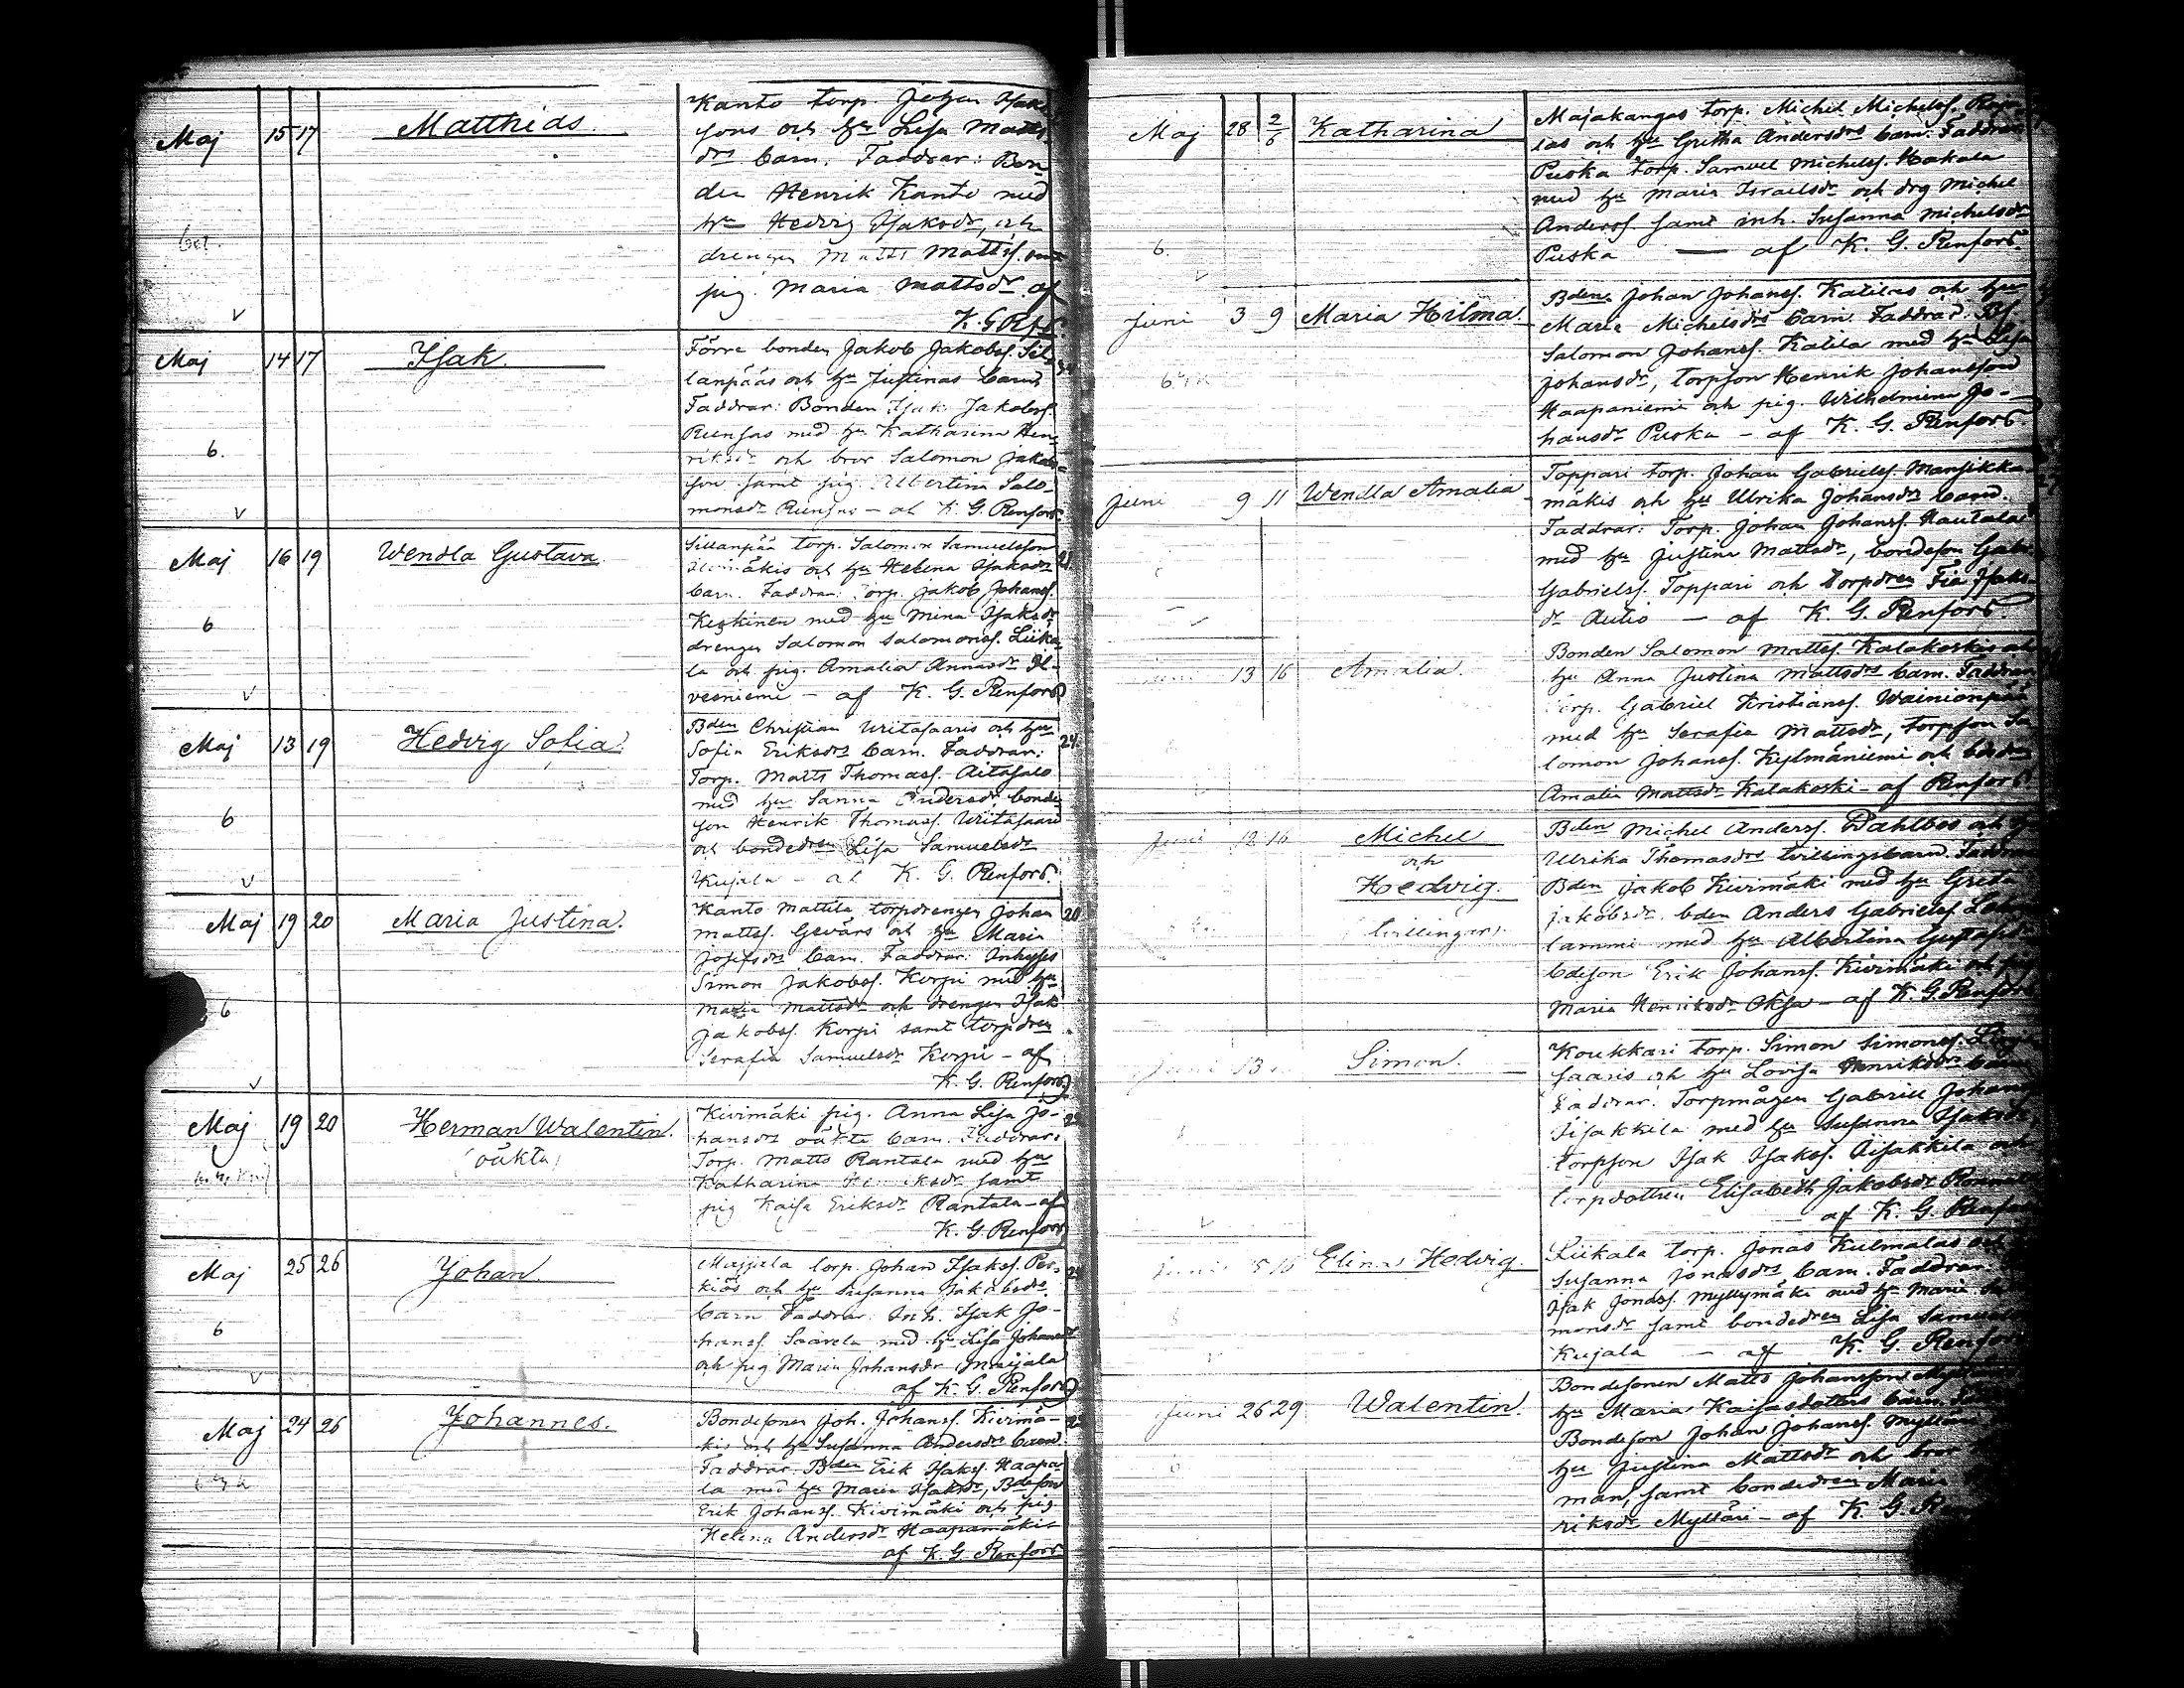 Maj 15 17 Matthias. Kanto torp. Johan Isak-
sons och hu Lisa Matts-
drs barn. Faddrar: Bon-
den Henrik Kanto med
hu Hedvig Isaksdr, och
drengen Matts Mattss. samt
pig. Maria Mattsdr af
K. G. Rfs.
Maj 14 17 Isak. Förre bonden Jakob Jakobss. Sil-
lanpääs och hu Justinas barn.
Faddrar: Bonden Isak Jakobss.
Runsas med hu Katharina Hen-
riksdr och bror Salomon Jakob-
son samt pig. Albertina Salo-
monsdr Runsas - af K. G. Renfors.
6.
Maj 16 19 Wendla Gustava Sillanpää torp. Salomon Samuelsson
och hu Helena Isaksdrs
barn. Faddrar: Torp. Jakob Johanss.
Keskinen med hu Mina Isaksdr
drengen Salomon Salomonss. Liika-
la och pig. Amalia Annasdr Il-
vesniemi - af K. G. Renfors
6
Maj 13 19 Hedvig Sofia. Bden Christian Uritasaaris och hu
Sofia Eriksdrs barn. Faddrar:
Torp. Matts Thomass. Aitasalo
med hu Sanna Andersdr, bonde-
son Henrik Thomass. Uritasaari
och bondedren Lisa Samuelsdr
Kujala - af K. G. Renfors.
24.
6
Maj 19 20 Maria Justina. Kanto Mattila torpdrengen Johan
Mattss. Gevärs och hu Maria
Josefsdrs barn. Faddrar: Inhyses
Simon Jakobss. Korpi med hu
Maria Mattsdr och drengen Isak
Jakobss. Korpi samt torpdren
Serafia Samuelsdr Korpi - af
K. G. Renfors
20
6
Maj 19 20 Herman Walentin.
(oäkta)
Kivimäki pig. Anna Lisa Jo-
hansdrs oäkta barn. Faddrar:
Torp. Matts Rantala med hu
Katharina samt
pig Kaisa Eriksdr Rantala - af
K. G. Renfors
Maj 25 26 Johan. Maijala torp. Johan Isakss. Per-
kiös och hu Susanna Jakobsdrs
barn Faddrar: Inh. Isak Jo-
hanss. Saarela med hu Lisa Johansdr
och pig Maria Johansdr Maijala
af K. G. Renfors
6
Maj 24 26 Johannes. Bondesonen Joh. Johanss. Kivimä-
kis och hu Susanna Andersdrs barn.
Faddrar. Bden Erik Isakss. Haapa-
la med hu Maria Isaksdr, Bdeson
Erik Johanss. Kivimäki och pig
Helena Andersdr Haapamäki
af K. G. Renfors
Maj 28 2/6 Katharina Majakangas torp. Michel Michelss.
och hu Gretha Andersdrs barn. Faddrar
Puska torp. Samuel Michelss. Hakala
med hu Maria Israelsdr och drg Michel
Anderss. samt inh. Susanna Michelsdr
Puska — af K. G. Renfors
6.
Juni 3 9 Maria Hilma. Bdens Johan Johanss. Katilas och hu
Maria Michelsdrs barn. Faddrar.
Salomon Johanss. Katila med hu Lisa
Johansdr, torpson Henrik Johansson
Haapaniemi och pig. Wilhelmina Jo-
hansdr Puska - af K. G. Renfors.
Juni 9 11 Wendla Amalia Toppari torp. Johan Gabrielss. Mansikka-
mäkis och hu Ulrika Johansdrs barn.
Faddrar: Torp. Johan Johanss. Hautala
med hu Justina Mattsdr, bondeson Gabr.
Gabrielss. Toppari och torpdren Fia Isaks-
dr Autio — af K. G. Renfors
13 16 Amalia. Bonden Salomon Mattss. Kalakoskis och
hu Anna Justina Mattsdrs barn. Faddrar
Torp. Gabriel Kristianss. Wainionpää
med hu Serafia Mattsdr, torpson Sa-
lomon Johanss. Kylmäniemi och
Amalia Mattsdr Kalakoski - af Renfors
Juni 12 16 Michel
och
Hedvig.
(tvillingar).
Bden Michel Anderss. Dahlbos och hu
Ulrika Thomasdrs tvillingsbarn. Faddrar
Bden Jakob Kivimäki med hu Greta
Jakobsdr. bden Anders Gabrielss.
lammi med hu Albertina
bdeson Erik Johanss. Kivimäki och pig
Maria Henriksdr Oksa - af K. G. Renfors
Juni 13 Simon. Koukkari torp. Simon Simonss.
saaris och hu Lovisa Henriksdrs barn
Faddrar. Torpmågen Gabriel Johanss.
Iisakkila med hu Susanna Isaksdr,
torpson Isak Isakss. Iisakkila och
torpdottren Elisabeth Jakobsdr
af K. G. Renfors
Juni 15 16 Elina Hedvig. Liikala torp. Jonas Kulmalas och
Susanna Jonasdrs barn. Faddrar.
Isak Jonass. Myllymäki med hu Maria
monsdr samt bondedren Lisa Samuelsdr
Kujala — af K. G. Renfors
Juni 26 29 Walentin. Bondesonen Matts Johansson
hu Maria Kaisasdotters barn.
Bondeson Johan Johanss.
hu Justina Mattsdr och bror
man, samt bondedren Maria
riksdr Mylläri - af K. G.